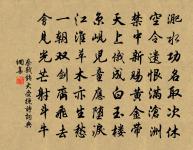 淝水功名取次休
空令遗恨满沧洲
禁中新赐黄金带
天上俄成白玉楼
京岘儿童应堕泪
江淮草木亦生愁
一朝双剑齐飞去
会见光芒射斗牛